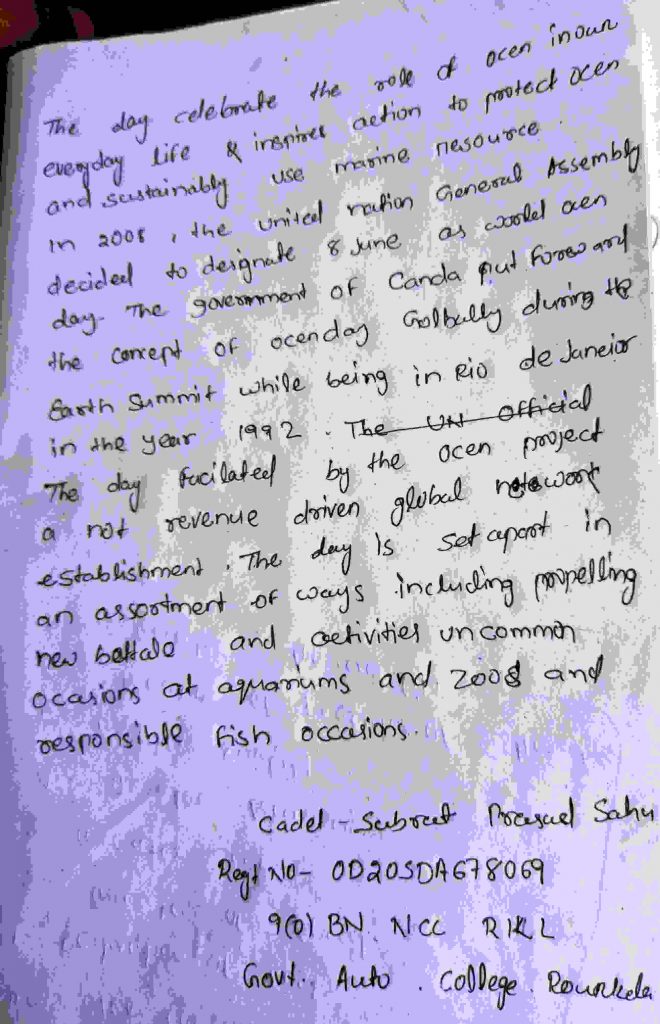 The day celebrate the role of ocen in our
everyday life & inspires action to protect ocen
and sustainably use marine resource.
In 2008, the united nation General Assembly
decided to designate 8 June as world ocen
day. The government of Canda put foreward
the concept of ocenday Golbally during the
Earth Summit while being in Rio de Janeior
in the year 1992. The UN Official
The day facilated by the ocen project
a not revenue driven global network
establishment. The day is set apart in
an assortment of ways including propelling
new and activities uncommon
ocasions at aquariums and zoos and
responsible fish occasions.
Cadet - Subrat Prasad Sahu
Regt No- OD20SDA678069
9(O) BN NCC RKL
Govt. Auto. College. Rourkela